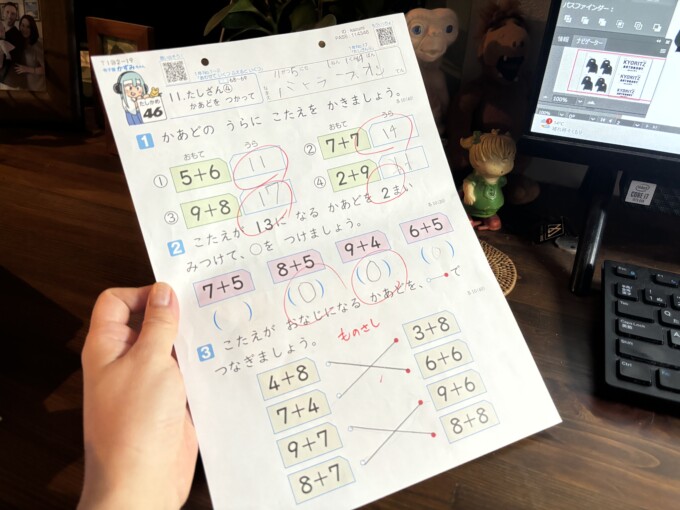 11.たしざん④
かあどを つかって
たしかめ
46
1 かあどの うらに こたえを かきましょう。
おもて うら
① 5+6 11
② 7+7 14
③ 9+8 17
④ 2+9 11
2 こたえが 13に なる かあどを 2まい
みつけて、○を つけましょう。
7+5 8+5 9+4 6+5
( ) (○) (○) ( )
3 こたえが おなじになる かあどを、 で
つなぎましょう。
ものさし
4+8 3+8
7+4 6+6
9+7 9+6
8+7 8+8
パスファインダー:
情報 ナビゲーター
KYORITZ
100%
CORE i7